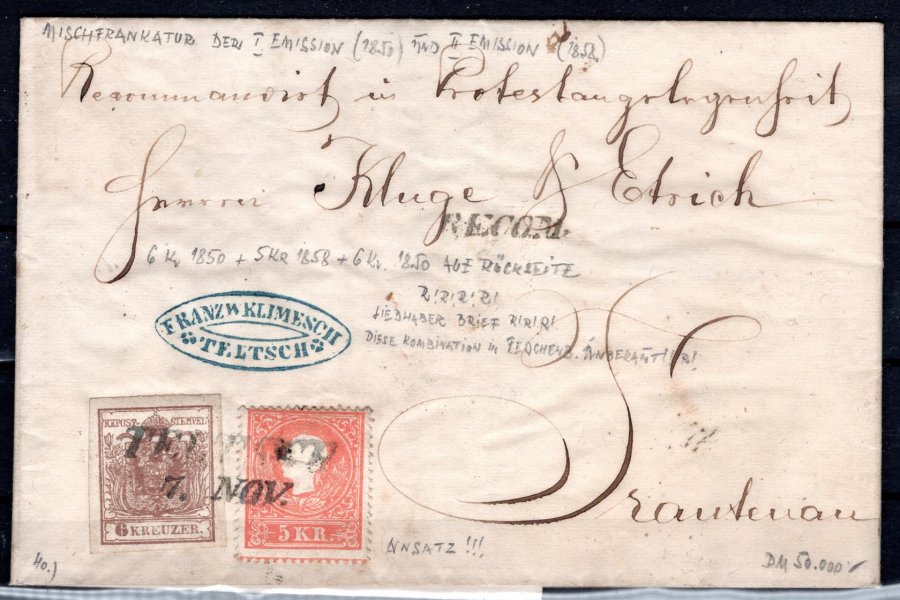 MISCHFRANKATUR DER I EMISSION (1850) UND II EMISSION (1858)
Recommandirt in Protestangelegenheit
Herrn Kluge & Etrich
RECOM.
6 Kr 1850 + 5KR 1858 + 6 Kr. 1850 AUF RÜCKSEITE
R!R!R!R!
LIEBHABER BRIEF R!R!R!
DIESE KOMBINATION IN FERCHENB. UNBEKANT! R!
FRANZ W KLIMESCH
TELTSCH
KKPOST-STEMPEL
7. NOV.
6 KREUZER.
5 KR.
Trautenau
ANSATZ !!!
40.)
DM 50.000.-